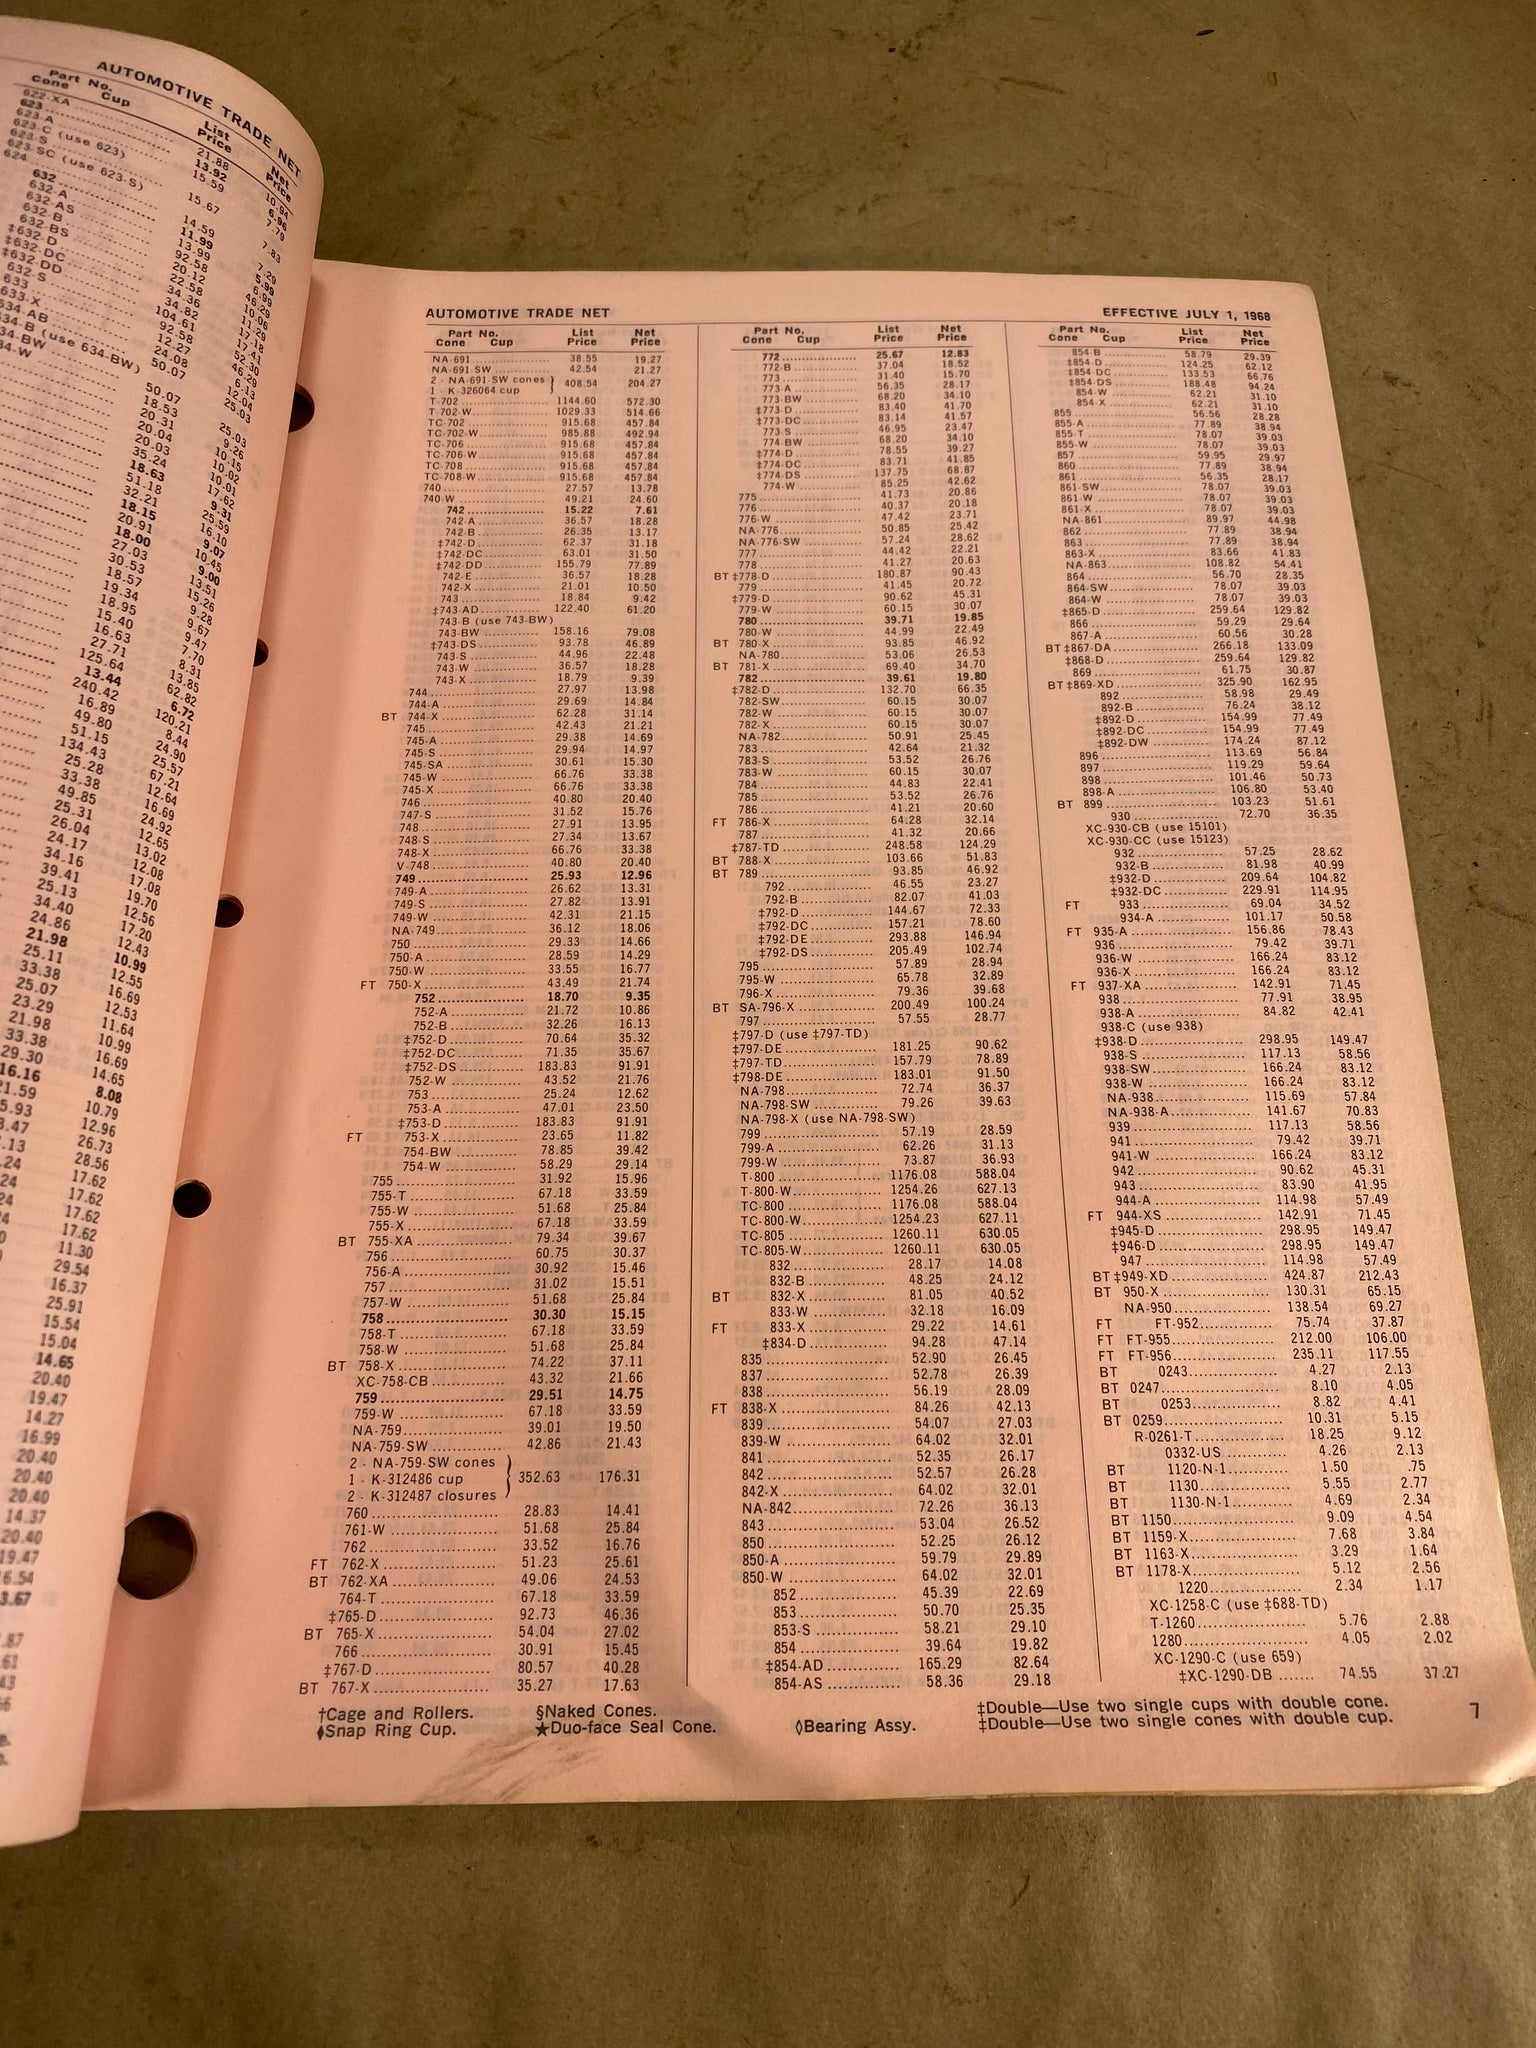 AUTOMOTIVE TRADE NET
Part No.
Cone Cup
List Price
Net Price
622-XA 21.88 10.94
623 13.92 6.96
623-A 15.59 7.79
623-C (use 623)
623-S 15.67 7.83
623-SC (use 623-S)
624 14.59 7.29
632 11.99 5.99
632-A 13.99 6.99
632-AS 92.58 46.29
632-B 20.12 10.06
632-BS 22.58 11.29
‡632-D 34.36 17.18
‡632-DC 34.82 17.41
‡632-DD 104.61 52.30
AUTOMOTIVE TRADE NET EFFECTIVE JULY 1, 1968
Part No. List Net
Cone Cup Price Price
NA-691 38.55 19.27
NA-691-SW 42.54 21.27
2 - NA-691-SW cones
1 - K-326064 cup } 408.54 204.27
T-702 1144.60 572.30
T-702-W 1029.33 514.66
TC-702 915.68 457.84
TC-702-W 985.88 492.94
TC-706 915.68 457.84
TC-706-W 915.68 457.84
TC-708 915.68 457.84
TC-708-W 915.68 457.84
740 27.57 13.78
740-W 49.21 24.60
742 15.22 7.61
742-A 36.57 18.28
742-B 26.35 13.17
‡742-D 62.37 31.18
‡742-DC 63.01 31.50
‡742-DD 155.79 77.89
742-E 36.57 18.28
742-X 21.01 10.50
743 18.84 9.42
‡743-AD 122.40 61.20
743-B (use 743-BW)
743-BW 158.16 79.08
‡743-DS 93.78 46.89
743-S 44.96 22.48
743-W 36.57 18.28
743-X 18.79 9.39
744 27.97 13.98
744-A 29.69 14.84
BT 744-X 62.28 31.14
745 42.43 21.21
745-A 29.38 14.69
745-S 29.94 14.97
745-SA 30.61 15.30
745-W 66.76 33.38
745-X 66.76 33.38
746 40.80 20.40
747-S 31.52 15.76
748 27.91 13.95
748-S 27.34 13.67
748-X 66.76 33.38
V-748 40.80 20.40
749 25.93 12.96
749-A 26.62 13.31
749-S 27.82 13.91
749-W 42.31 21.15
NA-749 36.12 18.06
750 29.33 14.66
750-A 28.59 14.29
750-W 33.55 16.77
FT 750-X 43.49 21.74
752 18.70 9.35
752-A 21.72 10.86
752-B 32.26 16.13
‡752-D 70.64 35.32
‡752-DC 71.35 35.67
‡752-DS 183.83 91.91
752-W 43.52 21.76
753 25.24 12.62
753-A 47.01 23.50
‡753-D 183.83 91.91
FT 753-X 23.65 11.82
754-BW 78.85 39.42
754-W 58.29 29.14
755 31.92 15.96
755-T 67.18 33.59
755-W 51.68 25.84
755-X 67.18 33.59
BT 755-XA 79.34 39.67
756 60.75 30.37
756-A 30.92 15.46
757 31.02 15.51
757-W 51.68 25.84
758 30.30 15.15
758-T 67.18 33.59
758-W 51.68 25.84
BT 758-X 74.22 37.11
XC-758-CB 43.32 21.66
759 29.51 14.75
759-W 67.18 33.59
NA-759 39.01 19.50
NA-759-SW 42.86 21.43
2 - NA-759-SW cones
1 - K-312486 cup } 352.63 176.31
2 - K-312487 closures
760 28.83 14.41
761-W 51.68 25.84
762 33.52 16.76
FT 762-X 51.23 25.61
BT 762-XA 49.06 24.53
764-T 67.18 33.59
‡765-D 92.73 46.36
BT 765-X 54.04 27.02
766 30.91 15.45
‡767-D 80.57 40.28
BT 767-X 35.27 17.63
Part No. List Net
Cone Cup Price Price
772 25.67 12.83
772-B 37.04 18.52
773 31.40 15.70
773-A 56.35 28.17
773-BW 68.20 34.10
‡773-D 83.40 41.70
‡773-DC 83.14 41.57
773-S 46.95 23.47
774-BW 68.20 34.10
‡774-D 78.55 39.27
‡774-DC 83.71 41.85
‡774-DS 137.75 68.87
774-W 85.25 42.62
775 41.73 20.86
776 40.37 20.18
776-W 47.42 23.71
NA-776 50.85 25.42
NA-776-SW 57.24 28.62
777 44.42 22.21
778 41.27 20.63
BT ‡778-D 180.87 90.43
779 41.45 20.72
‡779-D 90.62 45.31
779-W 60.15 30.07
780 39.71 19.85
780-W 44.99 22.49
BT 780-X 93.85 46.92
NA-780 53.06 26.53
BT 781-X 69.40 34.70
782 39.61 19.80
‡782-D 132.70 66.35
782-SW 60.15 30.07
782-W 60.15 30.07
782-X 60.15 30.07
NA-782 50.91 25.45
783 42.64 21.32
783-S 53.52 26.76
783-W 60.15 30.07
784 44.83 22.41
785 53.52 26.76
786 41.21 20.60
FT 786-X 64.28 32.14
787 41.32 20.66
‡787-TD 248.58 124.29
BT 788-X 103.66 51.83
BT 789 93.85 46.92
792 46.55 23.27
792-B 82.07 41.03
‡792-D 144.67 72.33
‡792-DC 157.21 78.60
‡792-DE 293.88 146.94
‡792-DS 205.49 102.74
795 57.89 28.94
795-W 65.78 32.89
796-X 79.36 39.68
BT SA-796-X 200.49 100.24
797 57.55 28.77
‡797-D (use ‡797-TD)
‡797-DE 181.25 90.62
‡797-TD 157.79 78.89
‡798-DE 183.01 91.50
NA-798 72.74 36.37
NA-798-SW 79.26 39.63
NA-798-X (use NA-798-SW)
799 57.19 28.59
799-A 62.26 31.13
799-W 73.87 36.93
T-800 1176.08 588.04
T-800-W 1254.26 627.13
TC-800 1176.08 588.04
TC-800-W 1254.23 627.11
TC-805 1260.11 630.05
TC-805-W 1260.11 630.05
832 28.17 14.08
832-B 48.25 24.12
BT 832-X 81.05 40.52
833-W 32.18 16.09
FT 833-X 29.22 14.61
‡834-D 94.28 47.14
835 52.90 26.45
837 52.78 26.39
838 56.19 28.09
FT 838-X 84.26 42.13
839 54.07 27.03
839-W 64.02 32.01
841 52.35 26.17
842 52.57 26.28
842-X 64.02 32.01
NA-842 72.26 36.13
843 53.04 26.52
850 52.25 26.12
850-A 59.79 29.89
850-W 64.02 32.01
852 45.39 22.69
853 50.70 25.35
853-S 58.21 29.10
854 39.64 19.82
‡854-AD 165.29 82.64
854-AS 58.36 29.18
Part No. List Net
Cone Cup Price Price
854-B 58.79 29.39
‡854-D 124.25 62.12
‡854-DC 133.53 66.76
‡854-DS 188.48 94.24
854-W 62.21 31.10
854-X 62.21 31.10
855 56.56 28.28
855-A 77.89 38.94
855-T 78.07 39.03
855-W 78.07 39.03
857 59.95 29.97
860 77.89 38.94
861 56.35 28.17
861-SW 78.07 39.03
861-W 78.07 39.03
861-X 78.07 39.03
NA-861 89.97 44.98
862 77.89 38.94
863 77.89 38.94
863-X 83.66 41.83
NA-863 108.82 54.41
864 56.70 28.35
864-SW 78.07 39.03
864-W 78.07 39.03
‡865-D 259.64 129.82
866 59.29 29.64
867-A 60.56 30.28
BT ‡867-DA 266.18 133.09
‡868-D 259.64 129.82
869 61.75 30.87
BT ‡869-XD 325.90 162.95
892 58.98 29.49
892-B 76.24 38.12
‡892-D 154.99 77.49
‡892-DC 154.99 77.49
‡892-DW 174.24 87.12
896 113.69 56.84
897 119.29 59.64
898 101.46 50.73
898-A 106.80 53.40
BT 899 103.23 51.61
930 72.70 36.35
XC-930-CB (use 15101)
XC-930-CC (use 15123)
932 57.25 28.62
932-B 81.98 40.99
‡932-D 209.64 104.82
‡932-DC 229.91 114.95
FT 933 69.04 34.52
934-A 101.17 50.58
FT 935-A 156.86 78.43
936 79.42 39.71
936-W 166.24 83.12
936-X 166.24 83.12
FT 937-XA 142.91 71.45
938 77.91 38.95
938-A 84.82 42.41
938-C (use 938)
‡938-D 298.95 149.47
938-S 117.13 58.56
938-SW 166.24 83.12
938-W 166.24 83.12
NA-938 115.69 57.84
NA-938-A 141.67 70.83
939 117.13 58.56
941 79.42 39.71
941-W 166.24 83.12
942 90.62 45.31
943 83.90 41.95
944-A 114.98 57.49
FT 944-XS 142.91 71.45
‡945-D 298.95 149.47
‡946-D 298.95 149.47
947 114.98 57.49
BT ‡949-XD 424.87 212.43
BT 950-X 130.31 65.15
NA-950 138.54 69.27
FT FT-952 75.74 37.87
FT FT-955 212.00 106.00
FT FT-956 235.11 117.55
BT 0243 4.27 2.13
BT 0247 8.10 4.05
BT 0253 8.82 4.41
BT 0259 10.31 5.15
R-0261-T 18.25 9.12
0332-US 4.26 2.13
BT 1120-N-1 1.50 .75
BT 1130 5.55 2.77
BT 1130-N-1 4.69 2.34
BT 1150 9.09 4.54
BT 1159-X 7.68 3.84
BT 1163-X 3.29 1.64
BT 1178-X 5.12 2.56
1220 2.34 1.17
XC-1258-C (use ‡688-TD)
T-1260 5.76 2.88
1280 4.05 2.02
XC-1290-C (use 659)
‡XC-1290-DB 74.55 37.27
†Cage and Rollers. §Naked Cones. ‡Double—Use two single cups with double cone.
♦Snap Ring Cup. ★Duo-face Seal Cone. ◊Bearing Assy. ‡Double—Use two single cones with double cup.
7